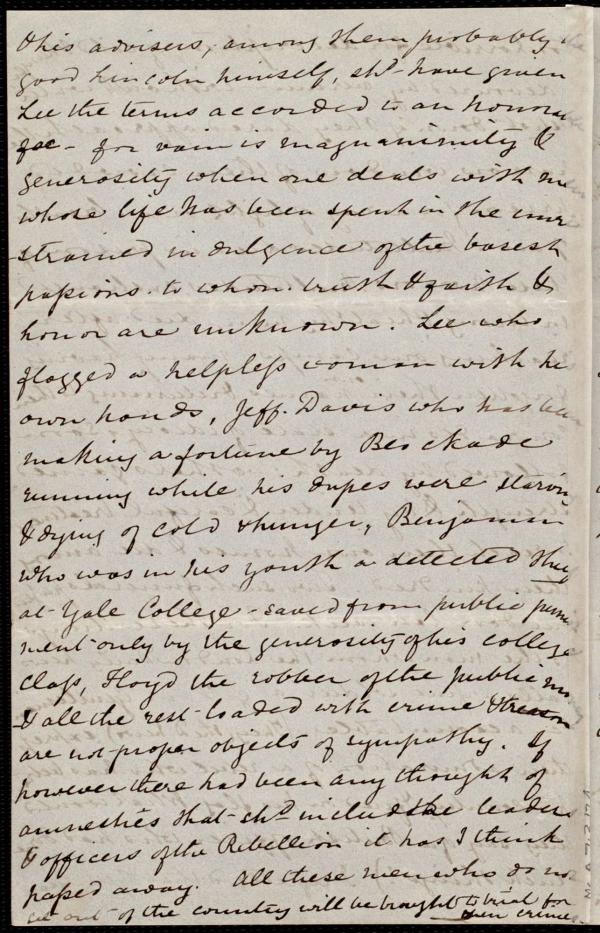 & his advisers, among them probably
good Lincoln himself, shd have given
Lee the terms accorded to an honora
foe - for vain is magnanimity &
generosity when one deals with me
whose life has been spent in the unre
-strained indulgence of the basest
passions. to whom. truth & faith &
honor are unknown. Lee who
flogged a helpless woman with his
own hands, Jeff. Davis who has been
making a fortune by Blockade
running while his dupes were starvin
& dying of cold & hunger, Benjamin
who was in his youth a detected thie
at Yale College - saved from public punish
ment only by the generosity of his college
class, Floyd the robber of the public mo
& all the rest loaded with crime & treason
are not proper objects of sympathy. If
however there had been any thought of
amnesties that shd include the leaders
& officers of the Rebellion it has I think
passed away. All these men who do not
get out of the country will be brought to trial for
their crimes